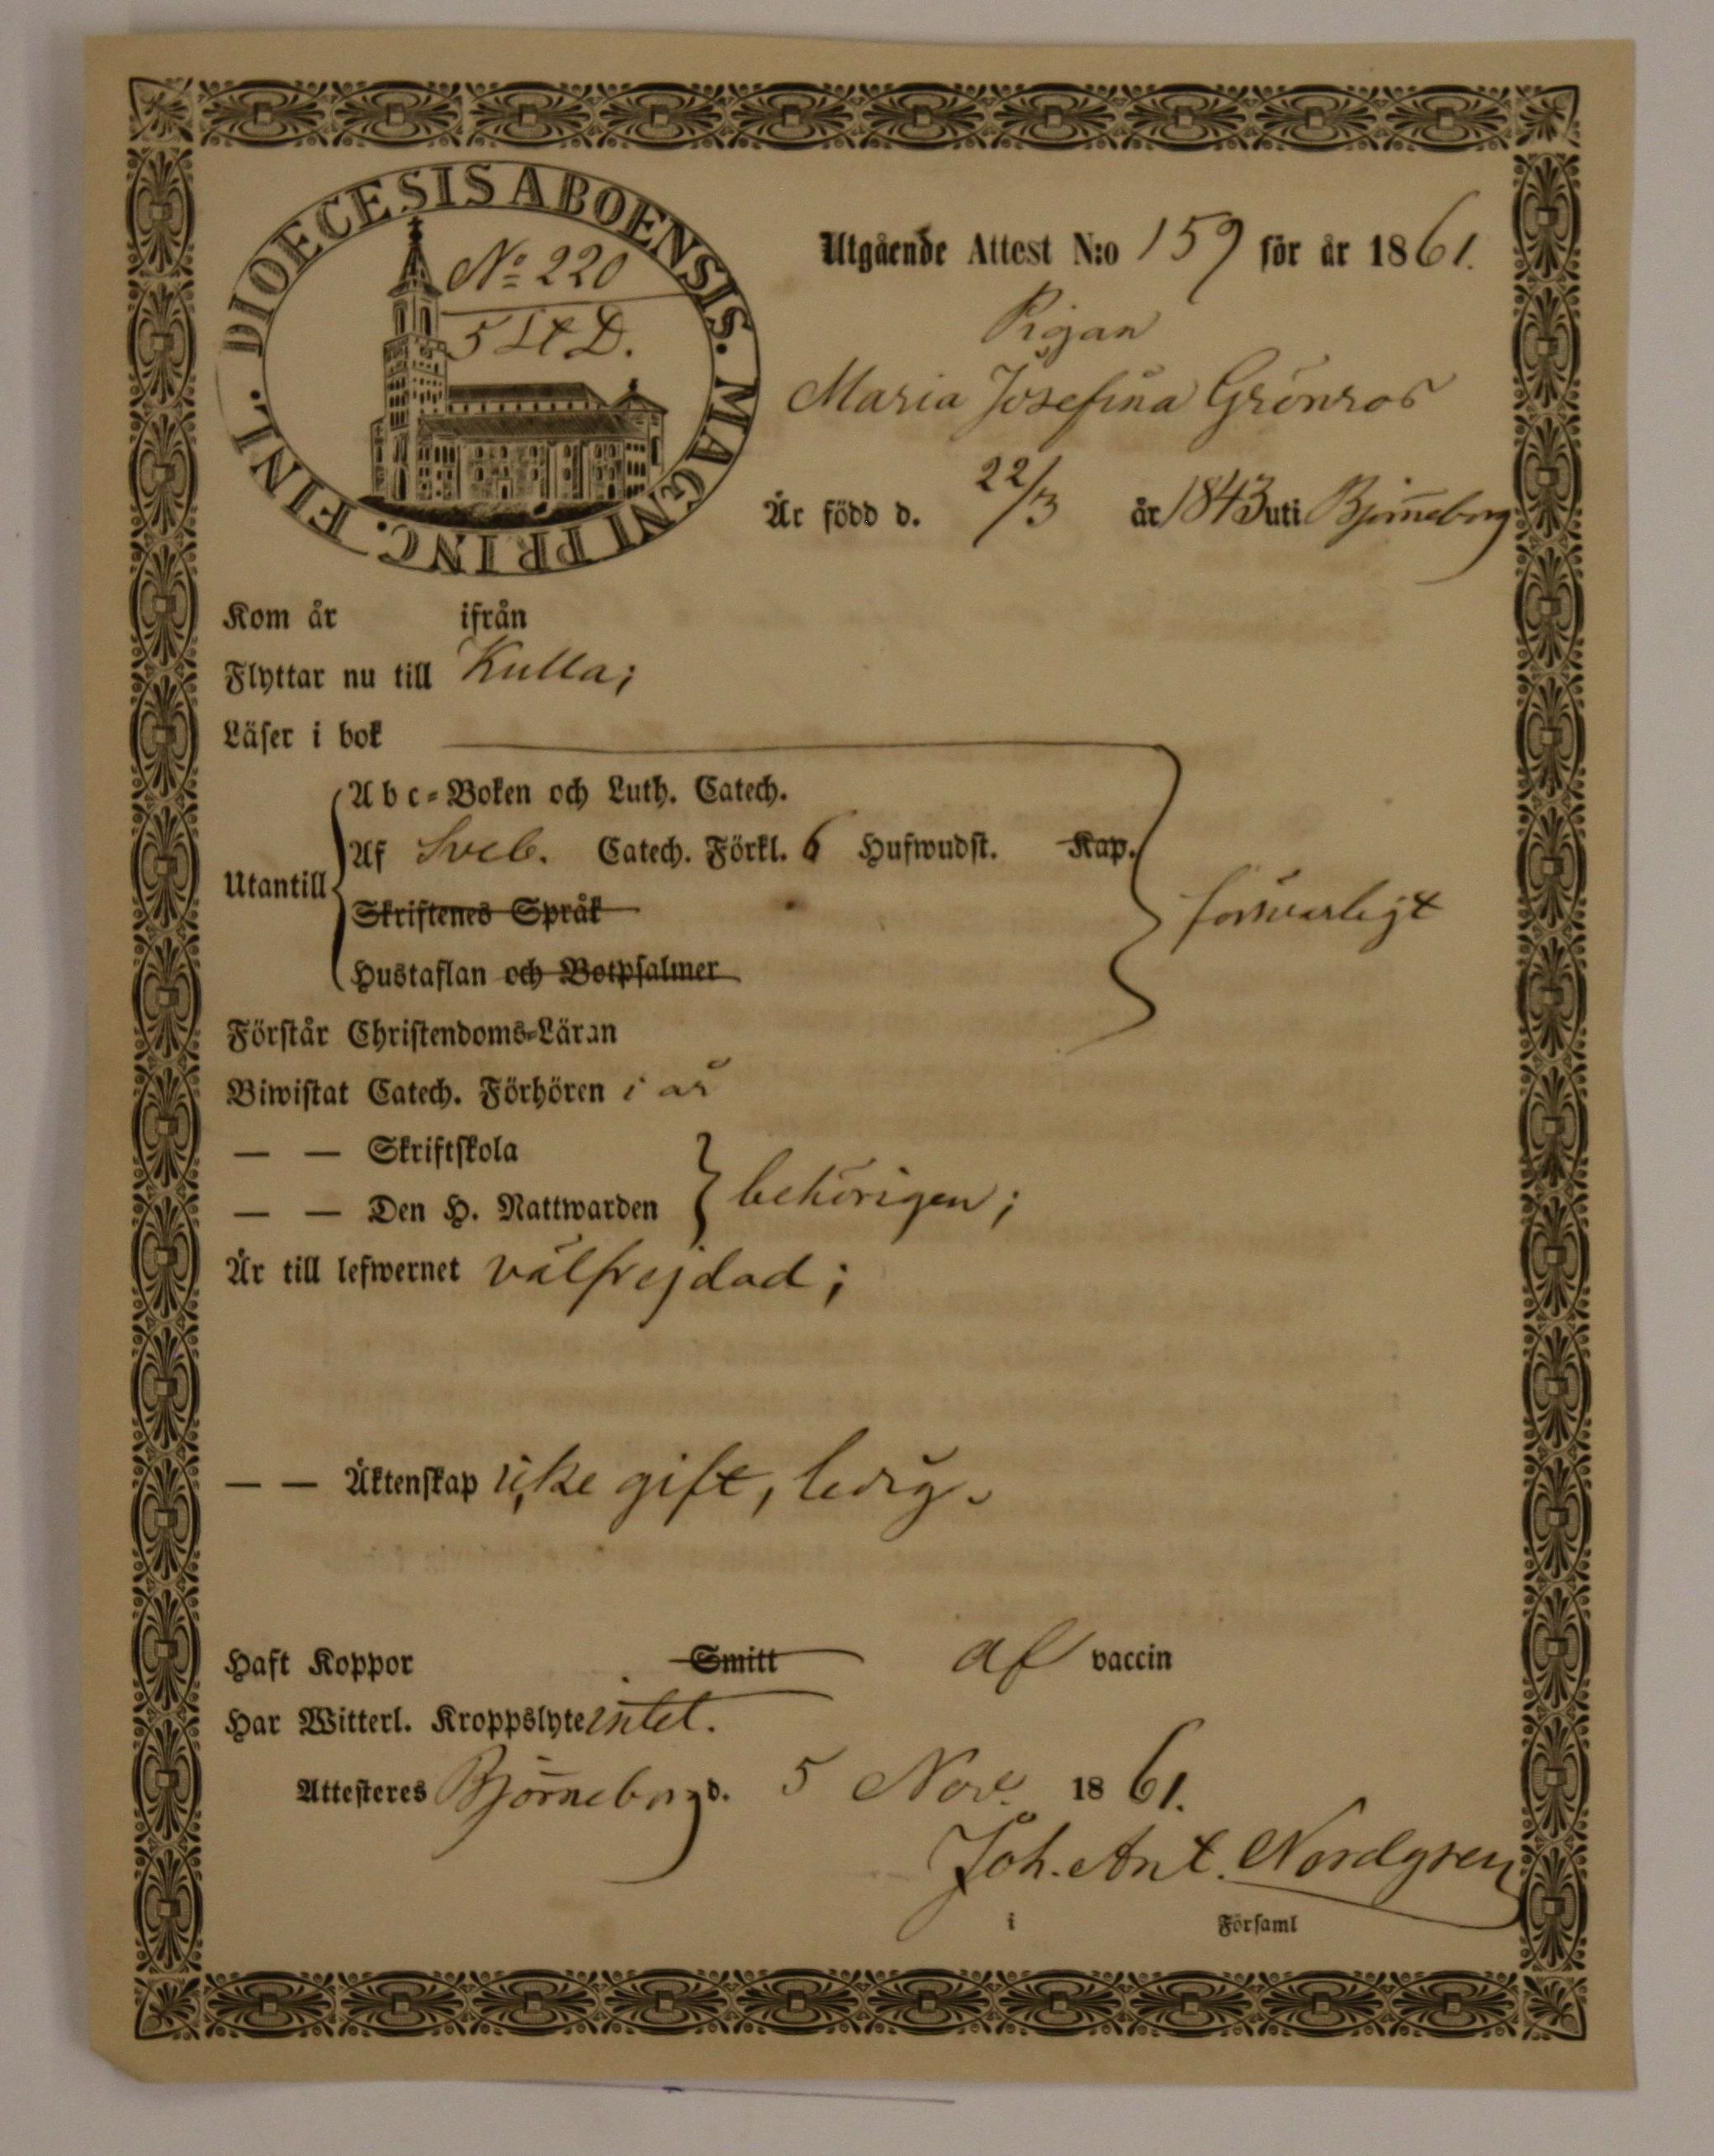 DIOECESIS ABOENSIS. MAGNI PRINC. FINL.
No 220
Utgående Attest N:o 159 för år 1861.
Pigan
Maria Josefina Grönroos
Är född d. 22/3 år 1843 uti Björneborg
Kom år ifrån
Flyttar nu till Kulla;
Läser i bok
Abc-Boken och Luth. Catech.
Utantill
Af Sveb. Catech. Förkl. 6 Hufwudst. Kap.
försvarligt
Skriftenes Språk
Hustaflan och Botpsalmer
Förstår Christendoms-Läran
Biwistat Catech. Förhören i år
— — Skriftskola
— — Den H. Nattwarden behörigen;
Är till lefwernet välfrejdad;
— — Äktenskap icke gift, ledig.
Haft Koppor Smitt af vaccin
Har Witterl. Kroppslyte intet.
Attesteres Björneborg d. 5 Nov. 1861.
Joh. Ant. Nordgren
i Församl